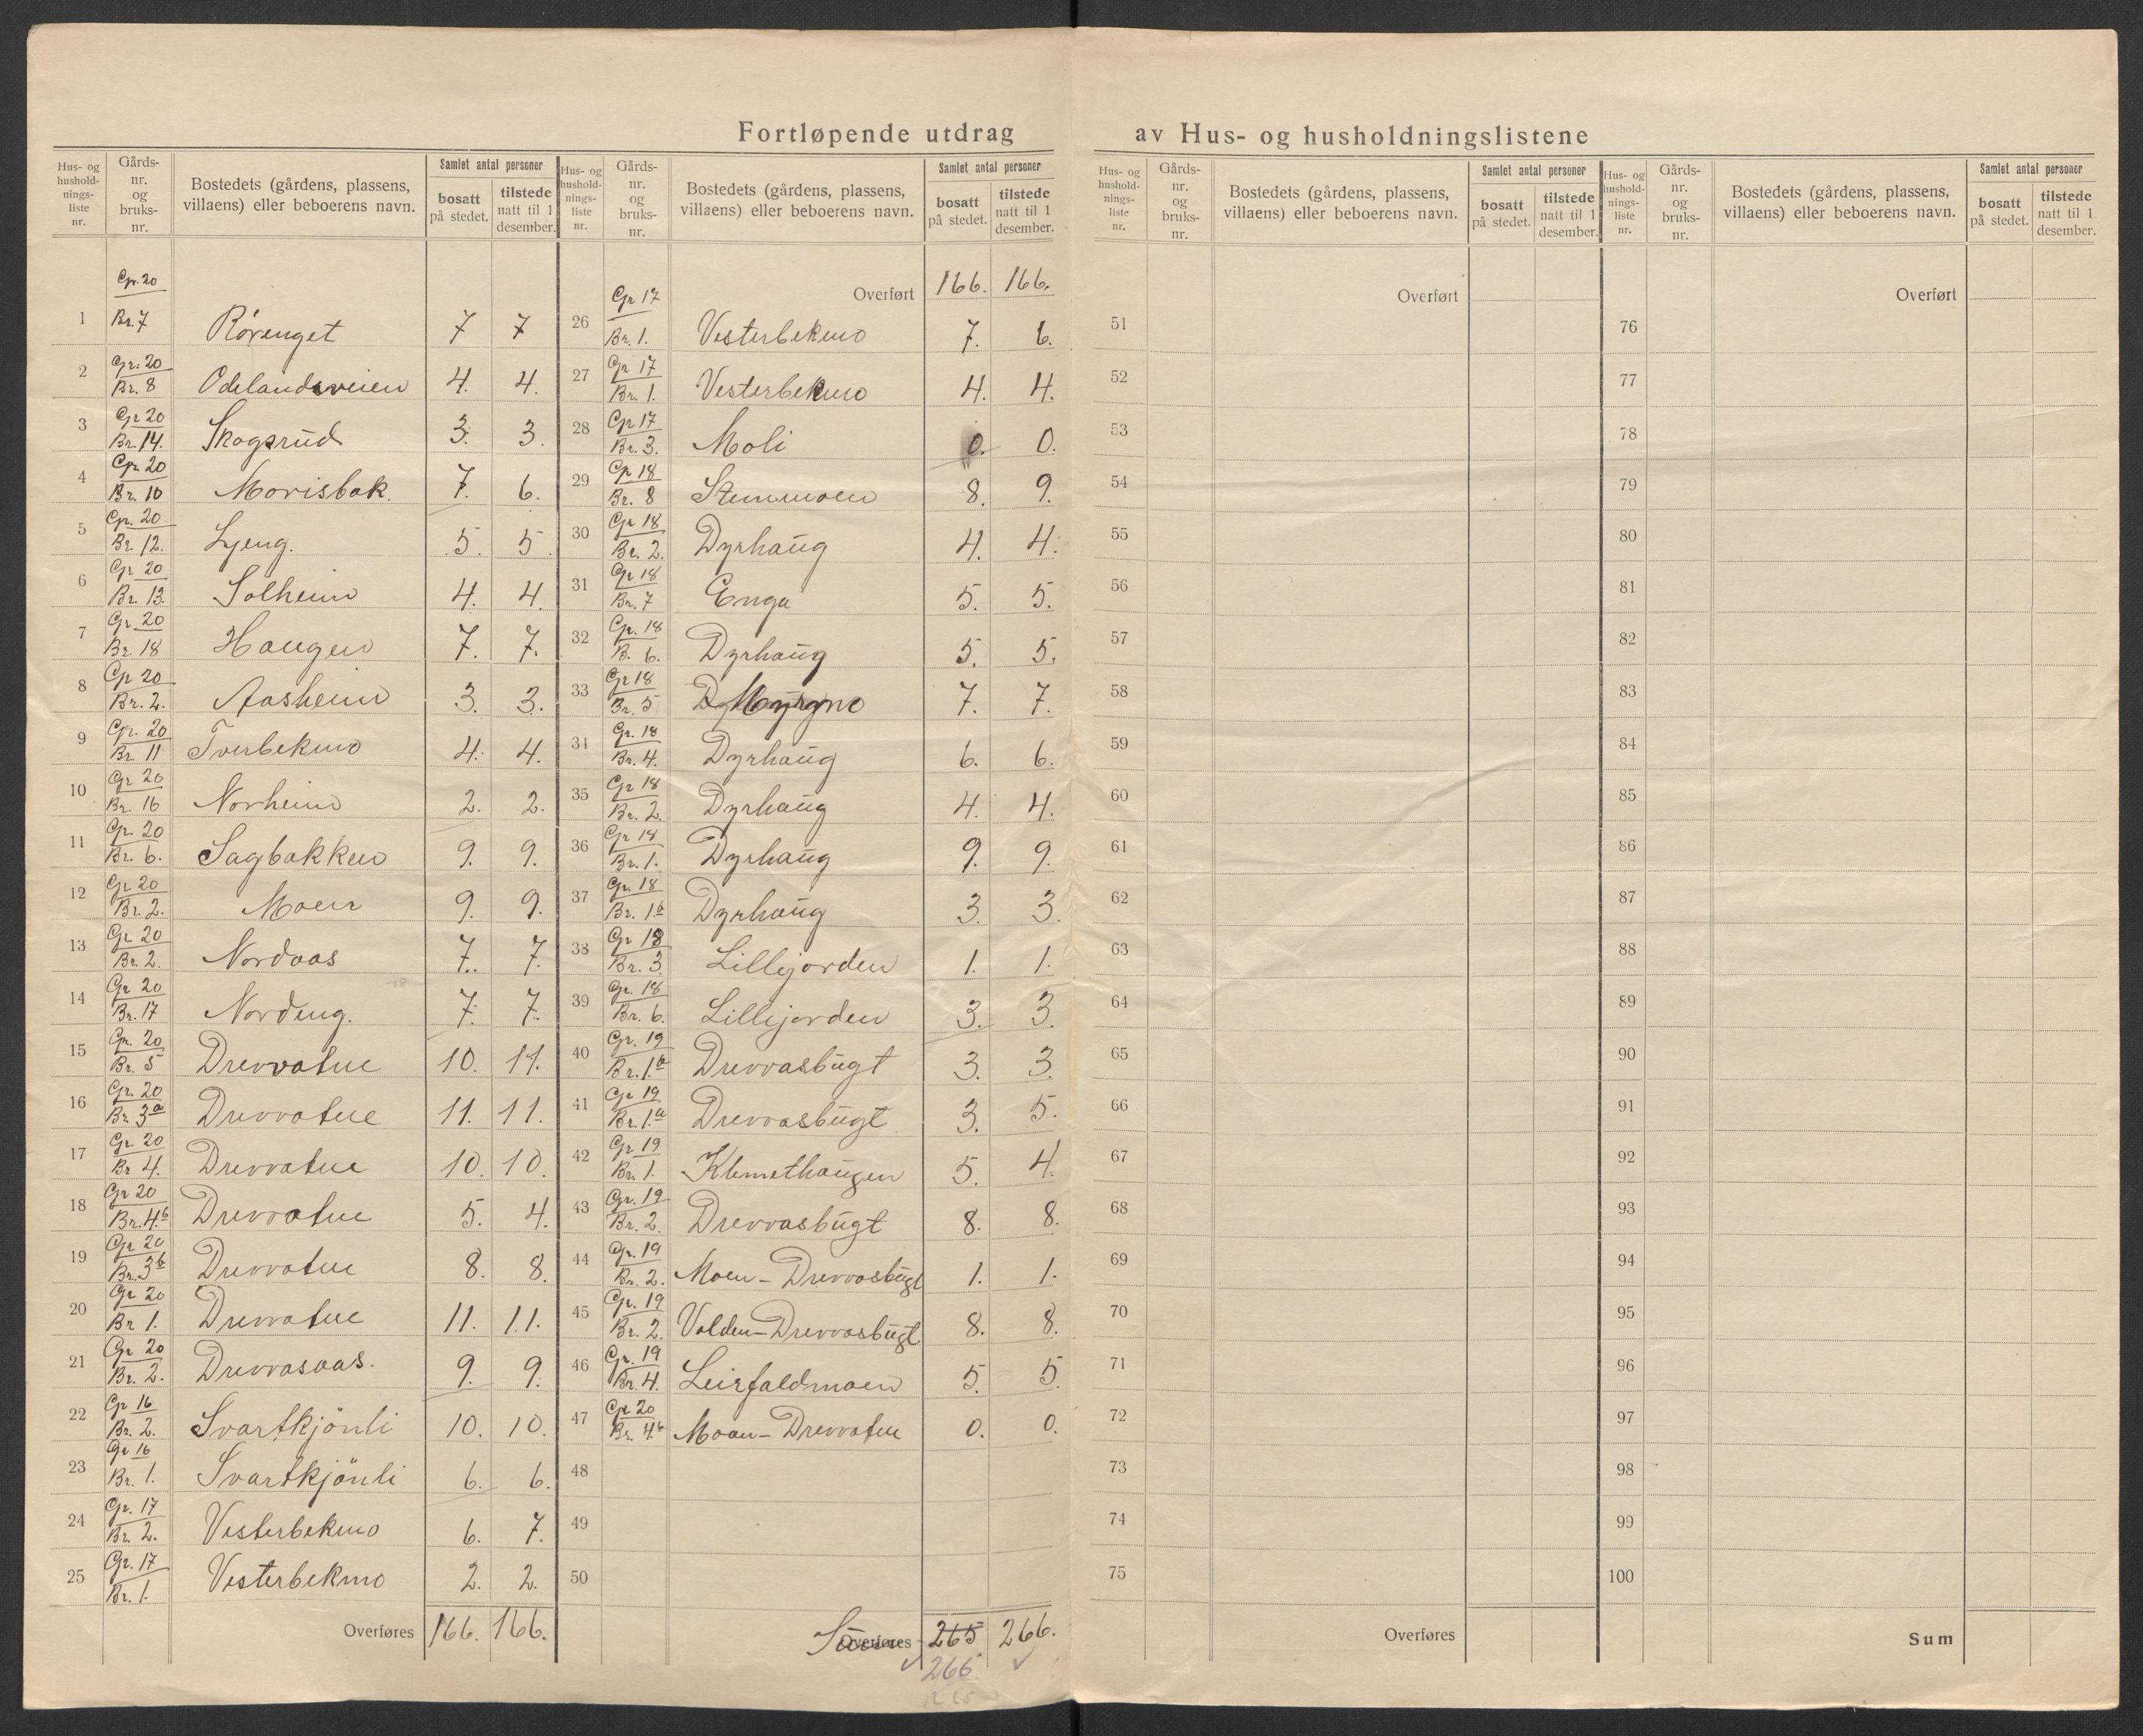 Fortløpende utdrag av Hus- og husholdningslistene
Hus- og husholdnings-liste nr. | Gårds-nr. og bruks-nr. | Bostedets (gårdens, plassens, villaens) eller beboerens navn. | Samlet antal personer | bosatt på stedet. | tilstede natt til 1 desember.
1 Gr. 20 Br. 7 Rörenget 7 7
2 Gr. 20 Br. 8 Ödelandsveien 4. 4.
3 Gr 20 Br. 14. Skogsrud 3. 3.
4 Gr. 20 Br. 10 Morisbak. 7. 6.
5 Gr. 20 Br. 12. Lyeng. 5. 5.
6 Gr 20 Br. 13. Solheim 4. 4.
7 Gr 20 Br. 18 Haugen 7. 7.
8 Gr 20 Br. 2. Aasheim 3. 3.
9 Gr. 20 Br. 11 Tverbekmo 4. 4.
10 Gr 20 Br. 16 Norheim 2. 2.
11 Gr. 20 Br. 6. Sagbakken 9. 9.
12 Gr 20 Br. 2. Moen 9. 9.
13 Gr 20 Br. 2. Nordaas 7. 7.
14 Gr 20 Br. 17 Nordeng. 7. 7.
15 Gr. 20 Br. 5 Drevvatne 10. 11.
16 Gr. 20 Br. 3a Drevvatne 11. 11.
17 Gr. 20 Br 4. Drevvatne 10. 10.
18 Gr 20 Br. 4.b Drevvatne 5. 4.
19 Gr 20 Br. 3b Drevvatne 8. 8.
20 Gr 20 Br 1. Drevvatne 11. 11.
21 Gr 20 Br. 2. Drevvasaas. 9. 9.
22 Gr 16 Br. 2. Svartkjönli 10. 10.
23 Gr 16 Br. 1. Svartkjönli 6. 6.
24 Gr. 17 Br. 2. Vesterbekmo 6. 7.
25 Gr. 17 Br. 1. Vesterbekmo 2. 2.
Overføres 166. 166.
Hus- og husholdnings-liste nr. | Gårds-nr. og bruks-nr. | Bostedets (gårdens, plassens, villaens) eller beboerens navn. | Samlet antal personer | bosatt på stedet. | tilstede natt til 1 desember.
Overført 166. 166.
26 Gr 17 Br. 1. Vesterbekmo 7. 6.
27 Gr 17 Br. 1. Vesterbekmo 4. 4.
28 Gr 17 Br. 3. Moli 0. 0.
29 Gr 18 Br. 8 Stemmoen 8. 9.
30 Gr 18 Br. 2. Dyrhaug 4. 4.
31 Gr 18 Br. 7 Enga 5. 5.
32 Gr. 18 B. 6. Dyrhaug 5. 5.
33 Gr 18 Br. 5 7. 7.
34 Gr. 18 Br. 4. Dyrhaug 6. 6.
35 Gr 18 Br. 2. Dyrhaug 4. 4.
36 Gr 18 Br. 1. Dyrhaug 9. 9.
37 Gr. 18 Br. 1b Dyrhaug 3. 3.
38 Gr 18 Br. 3. Lillejorden 1. 1.
39 Gr. 18 Br. 6. Lillejorden 3. 3.
40 Gr. 19 Br. 1b Drevvasbugt 3. 3.
41 Gr 19 Br. 1.a Drevvasbugt 3. 5.
42 Gr 19 Br. 1. Klemethaugen 5. 4.
43 Gr. 19 Br. 2. Drevvasbugt 8. 8.
44 Gr. 19 Br. 2. Moen - Drevvasbugt 1. 1.
45 Gr. 19 Br. 2. Volden - Drevvasbugt 8. 8.
46 Gr. 19 Br. 4. Leirfaldmoen 5. 5.
47 Gr 20 Br. 4.b Moan - Drevvatne 0. 0.
48
49
50
Overføres Sum 265 266.
266
Hus- og husholdnings-liste nr. | Gårds-nr. og bruks-nr. | Bostedets (gårdens, plassens, villaens) eller beboerens navn. | Samlet antal personer | bosatt på stedet. | tilstede natt til 1 desember.
Overført
51
52
53
54
55
56
57
58
59
60
61
62
63
64
65
66
67
68
69
70
71
72
73
74
75
Overføres
Hus- og husholdnings-liste nr. | Gårds-nr. og bruks-nr. | Bostedets (gårdens, plassens, villaens) eller beboerens navn. | Samlet antal personer | bosatt på stedet. | tilstede natt til 1 desember.
Overført
76
77
78
79
80
81
82
83
84
85
86
87
88
89
90
91
92
93
94
95
96
97
98
99
100
Sum